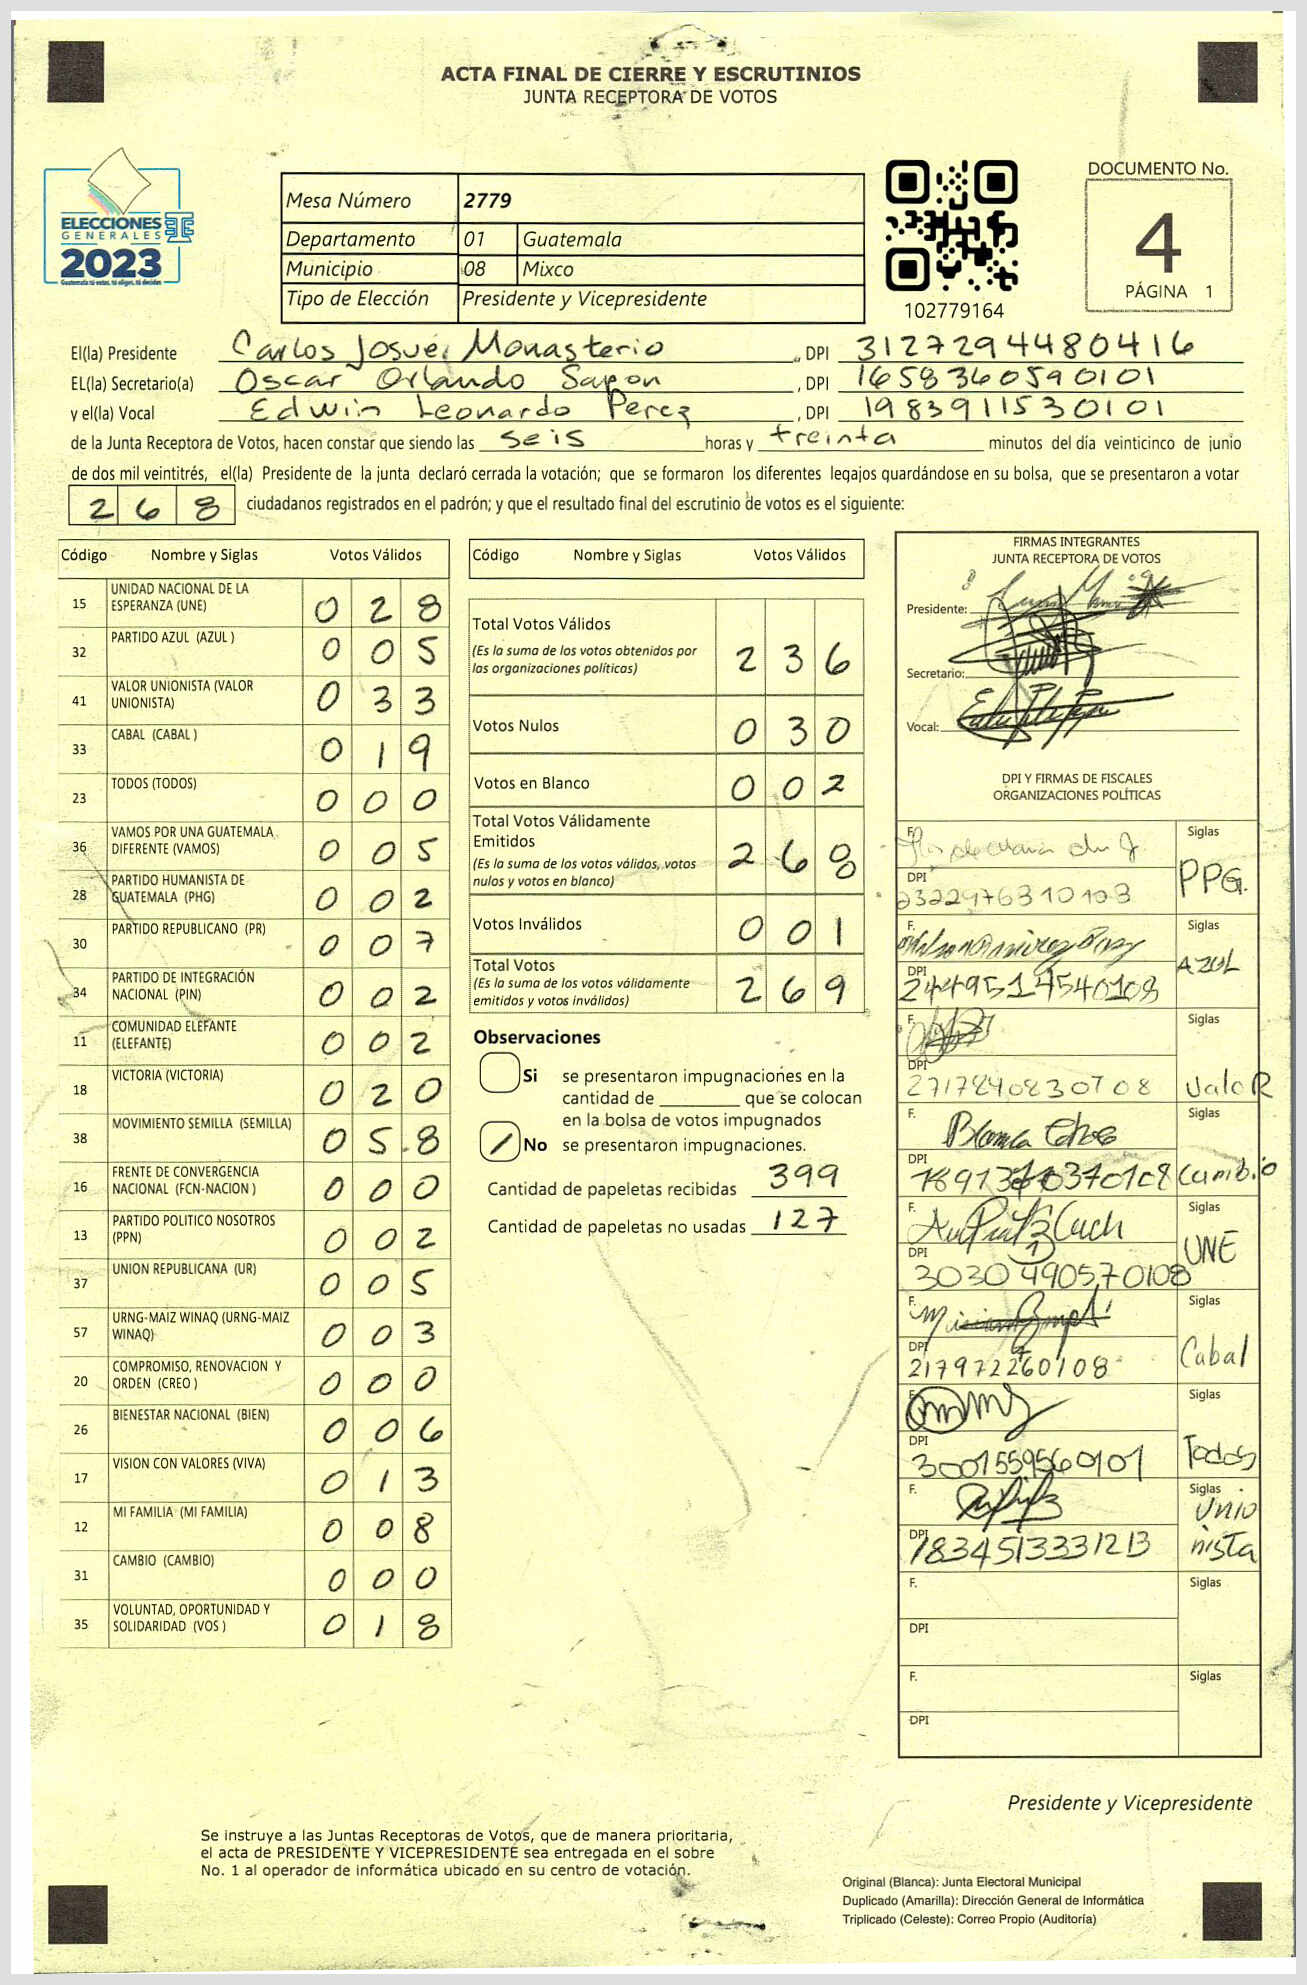 ACTA FINAL DE CIERRE Y ESCRUTINIOS
JUNTA RECEPTORA DE VOTOS
ELECCIONES
GENERALES
2023
Guatemala tú votas, tú eliges, tú decides
Mesa Número 2779
Departamento 01 Guatemala
Municipio 08 Mixco
Tipo de Elección Presidente y Vicepresidente
102779164
DOCUMENTO No.
4
PÁGINA 1
El(la) Presidente Carlos Josué Monasterio, DPI 3127294480416
EL(la) Secretario(a) Oscar Orlando Sapon, DPI 1658360590101
y el(la) Vocal Edwin Leonardo Perez, DPI 1983911530101
de la Junta Receptora de Votos, hacen constar que siendo las seis horas y treinta minutos del día veinticinco de junio
de dos mil veintitrés, el(la) Presidente de la junta declaró cerrada la votación; que se formaron los diferentes legajos guardándose en su bolsa, que se presentaron a votar
268 ciudadanos registrados en el padrón; y que el resultado final del escrutinio de votos es el siguiente:
Código Nombre y Siglas Votos Válidos
15 UNIDAD NACIONAL DE LA ESPERANZA (UNE) 028
32 PARTIDO AZUL (AZUL ) 005
41 VALOR UNIONISTA (VALOR UNIONISTA) 033
33 CABAL (CABAL ) 019
23 TODOS (TODOS) 000
36 VAMOS POR UNA GUATEMALA DIFERENTE (VAMOS) 005
28 PARTIDO HUMANISTA DE GUATEMALA (PHG) 002
30 PARTIDO REPUBLICANO (PR) 007
34 PARTIDO DE INTEGRACIÓN NACIONAL (PIN) 002
11 COMUNIDAD ELEFANTE (ELEFANTE) 002
18 VICTORIA (VICTORIA) 020
38 MOVIMIENTO SEMILLA (SEMILLA) 058
16 FRENTE DE CONVERGENCIA NACIONAL (FCN-NACION ) 000
13 PARTIDO POLITICO NOSOTROS (PPN) 002
37 UNION REPUBLICANA (UR) 005
57 URNG-MAIZ WINAQ (URNG-MAIZ WINAQ) 003
20 COMPROMISO, RENOVACION Y ORDEN (CREO ) 000
26 BIENESTAR NACIONAL (BIEN) 006
17 VISION CON VALORES (VIVA) 013
12 MI FAMILIA (MI FAMILIA) 008
31 CAMBIO (CAMBIO) 000
35 VOLUNTAD, OPORTUNIDAD Y SOLIDARIDAD (VOS ) 018
Código Nombre y Siglas Votos Válidos
Total Votos Válidos 236
(Es la suma de los votos obtenidos por
las organizaciones políticas)
Votos Nulos 030
Votos en Blanco 002
Total Votos Válidamente
Emitidos 268
(Es la suma de los votos válidos, votos
nulos y votos en blanco)
Votos Inválidos 001
Total Votos 269
(Es la suma de los votos válidamente
emitidos y votos inválidos)
Observaciones
Si se presentaron impugnaciones en la
cantidad de ________ que se colocan
en la bolsa de votos impugnados
No se presentaron impugnaciones.
Cantidad de papeletas recibidas 399
Cantidad de papeletas no usadas 127
FIRMAS INTEGRANTES
JUNTA RECEPTORA DE VOTOS
Presidente:
Secretario:
Vocal:
DPI Y FIRMAS DE FISCALES
ORGANIZACIONES POLÍTICAS
F. Siglas
DPI PPG.
F. Siglas
DPI 2449514540108 AZUL
F. Siglas
DPI ValoR
F. Blanca Siglas
DPI Cambio
F. Siglas
DPI 3030490570108 UNE
F. Siglas
DPI Cabal
F. Siglas
DPI 3001559560101 Todos
F. Siglas
DPI 1834513331213 Unionista
F. Siglas
DPI
F. Siglas
DPI
Presidente y Vicepresidente
Se instruye a las Juntas Receptoras de Votos, que de manera prioritaria,
el acta de PRESIDENTE Y VICEPRESIDENTE sea entregada en el sobre
No. 1 al operador de informática ubicado en su centro de votación.
Original (Blanca): Junta Electoral Municipal
Duplicado (Amarilla): Dirección General de Informática
Triplicado (Celeste): Correo Propio (Auditoría)